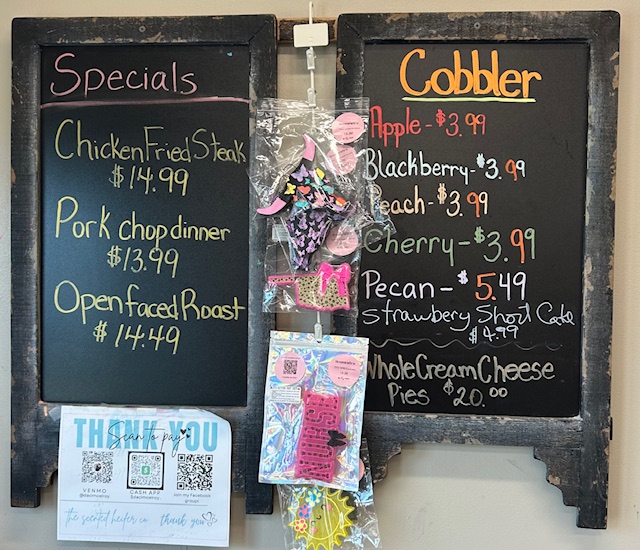 Specials
Chicken Fried Steak
$14.99
Pork chop dinner
$13.99
Open faced Roast
$14.49
Cobbler
Apple - $3.99
Blackberry - $3.99
Peach - $3.99
Cherry - $3.99
Pecan - $5.49
Strawbery Short Cake
$4.99
Whole Cream Cheese
Pies $20.00
THANK YOU
Scan to pay
VENMO
CASH APP
Join my Facebook
group!
the scented heifer co
thank you